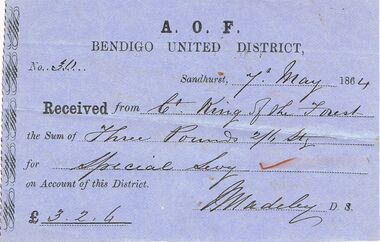 A. O. F.
BENDIGO UNITED DISTRICT,
No. 30
Sandhurst, 7th May 1864
Received from Ct King of the Forest
the Sum of Three Pounds 2/6 Stg
for Special Levy
on Account of this District.
£ 3.2.6 Madeley D. S.